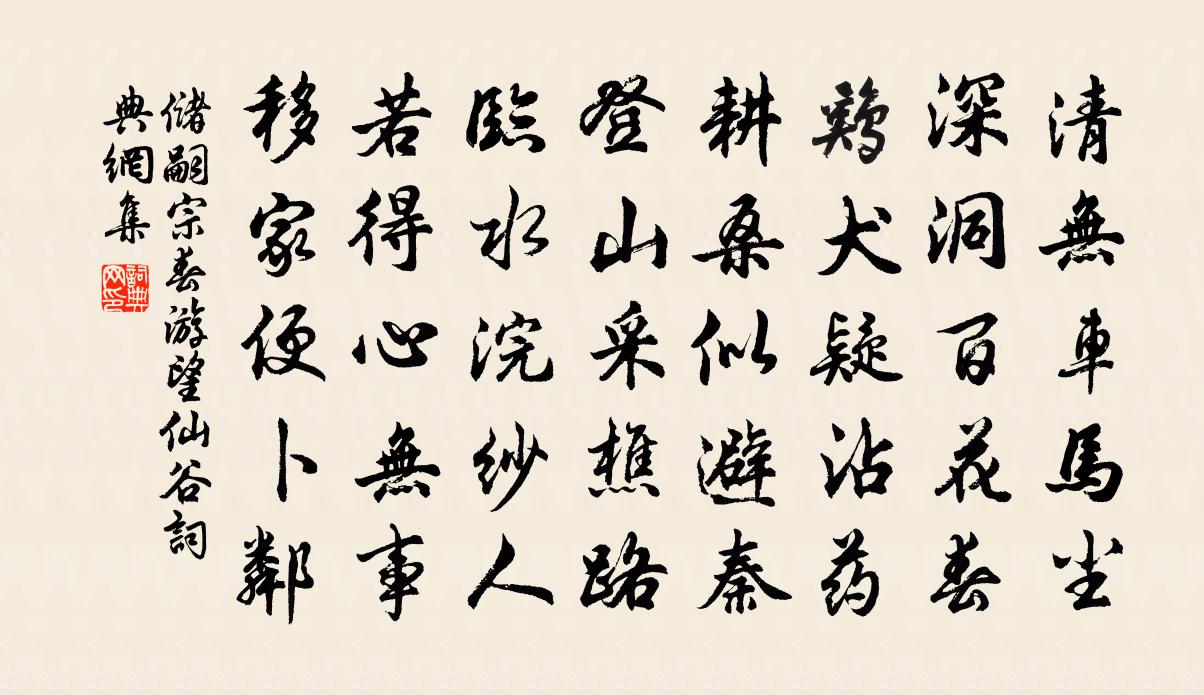 清無車馬尘
深洞百花春
鷄犬疑沾药
耕桑似避秦
登山采樵路
臨水浣紗人
若得心無事
移家便卜鄰
儲嗣宗春游望仙谷詞
典網集
詞典
网印